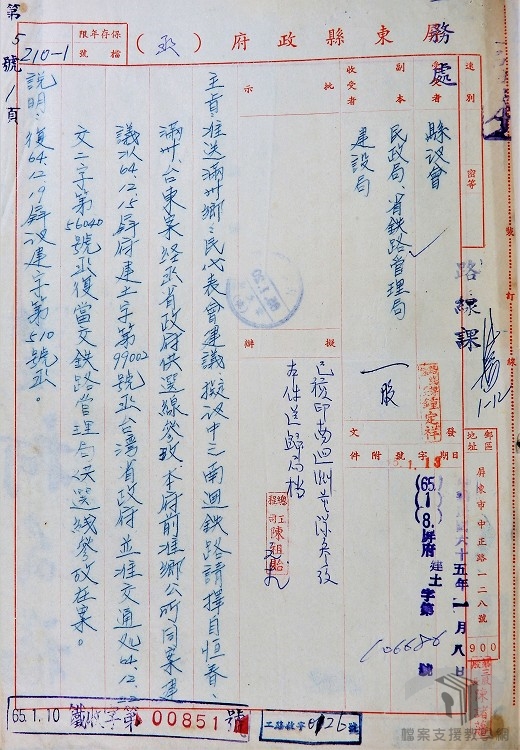 屏東縣政府（函）
保存年限
檔號
210-1
第5號1頁
務處
速別
密等
受文者
縣議會
副本收受者
民政局、省鐵路管理局
建設局
路線課
1-12
批示
擬辦
一股
已核印南迴洲
左件送歸局檔
總工程司 陳祖貽
鍾定祥
發文
日期
字號
附件
1.13
(65.1.8.)屏府建土字第106686號
六十五年一月八日
郵區
地址
屏東市中正路一二八號
900
裝訂線
主旨：准送滿州鄉民代表會建議，擬議中之南迴鐵路請擇自恒春、
滿州、台東案經函省政府供選線參考，本府前准鄉公所同案建
議以64.12.15屏府建土字第99002號函台灣省政府並准交通處64.12.22
交二字第56040號函復當交鐵路管理局供選線參考在案。
說明：復64.12.19屏議建字第510號函。
65.1.10
鐵收字第00851號
工路收字0126號
檔案支援教學網